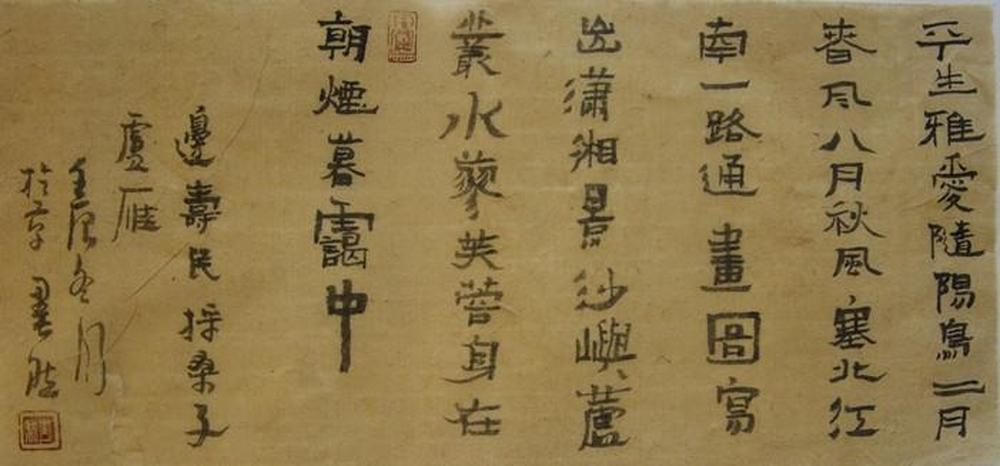 平生雅愛隨陽鳥二月
春風八月秋風塞北江
南一路通畫圖寫
出瀟湘景沙嶼蘆
叢水蓼芙蓉身在
朝煙暮靄中
邊壽民採桑子
蘆雁
冬月
於京